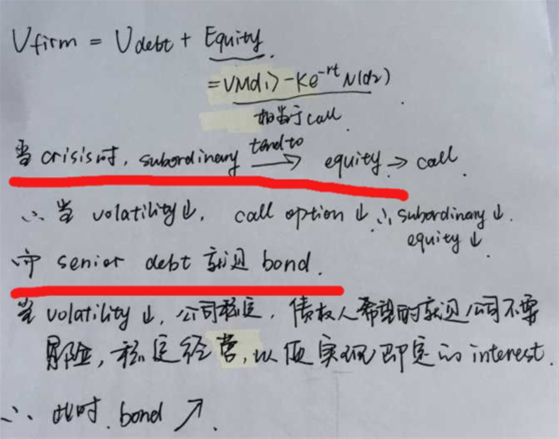 Vfirm = Vdebt + Equity
= VN(d1) - Ke^-rt N(d2)
相当于call.
当 crisis时, subordinary tend to → equity → call.
∴ 当 volatility↓, call option ↓ ∴ subordinary ↓.
equity ↓.
而 senior debt 就近 bond.
当 volatility ↓, 公司稳定, 债权人希望的就近公司不要
冒险, 稳定经营, 以便实现即定的 interest.
∴ 此时. bond ↗.